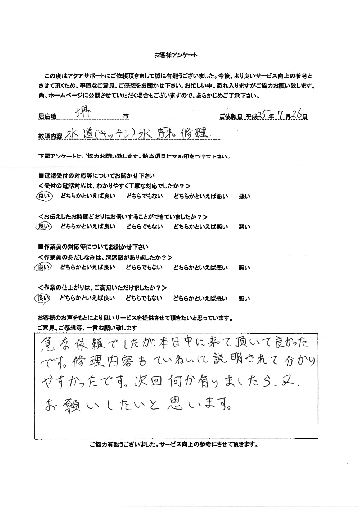 お客様アンケート
この度はアクアサポートにご依頼頂きまして誠に有難うございました。今後、より良いサービス向上の参考と
させて頂くため、率直なご意見、ご感想をお聞かせ下さい。お忙しい中、恐れ入りますがご協力お願い致します。
尚、ホームページに公開させていただく場合もございますので、あらかじめご了承下さい。
居住地 堺 市 ご依頼日 平成25年11月26日
依頼内容 水道(キッチン)水漏れ修理
下記アンケートに、ご協力お願い致します。
■電話受付の対応等についてお聞かせ下さい
＜受付の電話対応は、わかりやすく丁寧な対応でしたか？＞
良い どちらかといえば良い どちらでもない どちらかといえば悪い 悪い
＜お伝えしたお時間どおりにお伺いすることができていましたか？＞
良い どちらかといえば良い どちらでもない どちらかといえば悪い 悪い
■作業員の対応等についてお聞かせ下さい
＜作業員の身だしなみは、清潔感がありましたか？＞
良い どちらかといえば良い どちらでもない どちらかといえば悪い 悪い
＜作業の仕上がりは、ご満足いただけましたか？＞
良い どちらかといえば良い どちらでもない どちらかといえば悪い 悪い
お客様のお声をもとにより良いサービスを提供させて頂きたいと思っています。
ご意見、ご感想等、一言お願い致します
急な依頼でしたが、本日中に来て頂いて良かった
です。修理内容もていねいに説明されて分かり
やすかったです。次回何か有りましたら、又、
お願いしたいと思います。
ご協力有難うございました。サービス向上の参考にさせて頂きます。